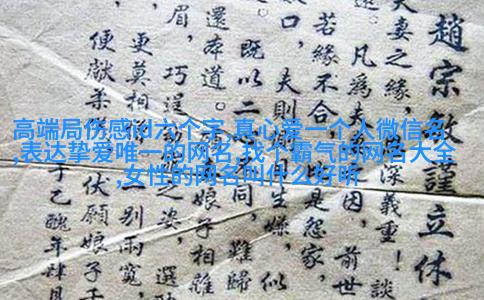 高端局伤感id六个字,真心爱一个人微信名
,表达挚爱唯一的网名,找个霸气的网名大全
,女性的网名叫什么好听
趙宗敏謹立休
夫妻之緣,深義重!談
凡為夫因,前世
若緣不合,是怨家,
口,夫則生嫌,似
既以二同,難歸
還本道。娘子相離
眉,巧逞之姿,選
更莫相別兩寬,
便獻柔伏願娘子千
于乙醜年肆月